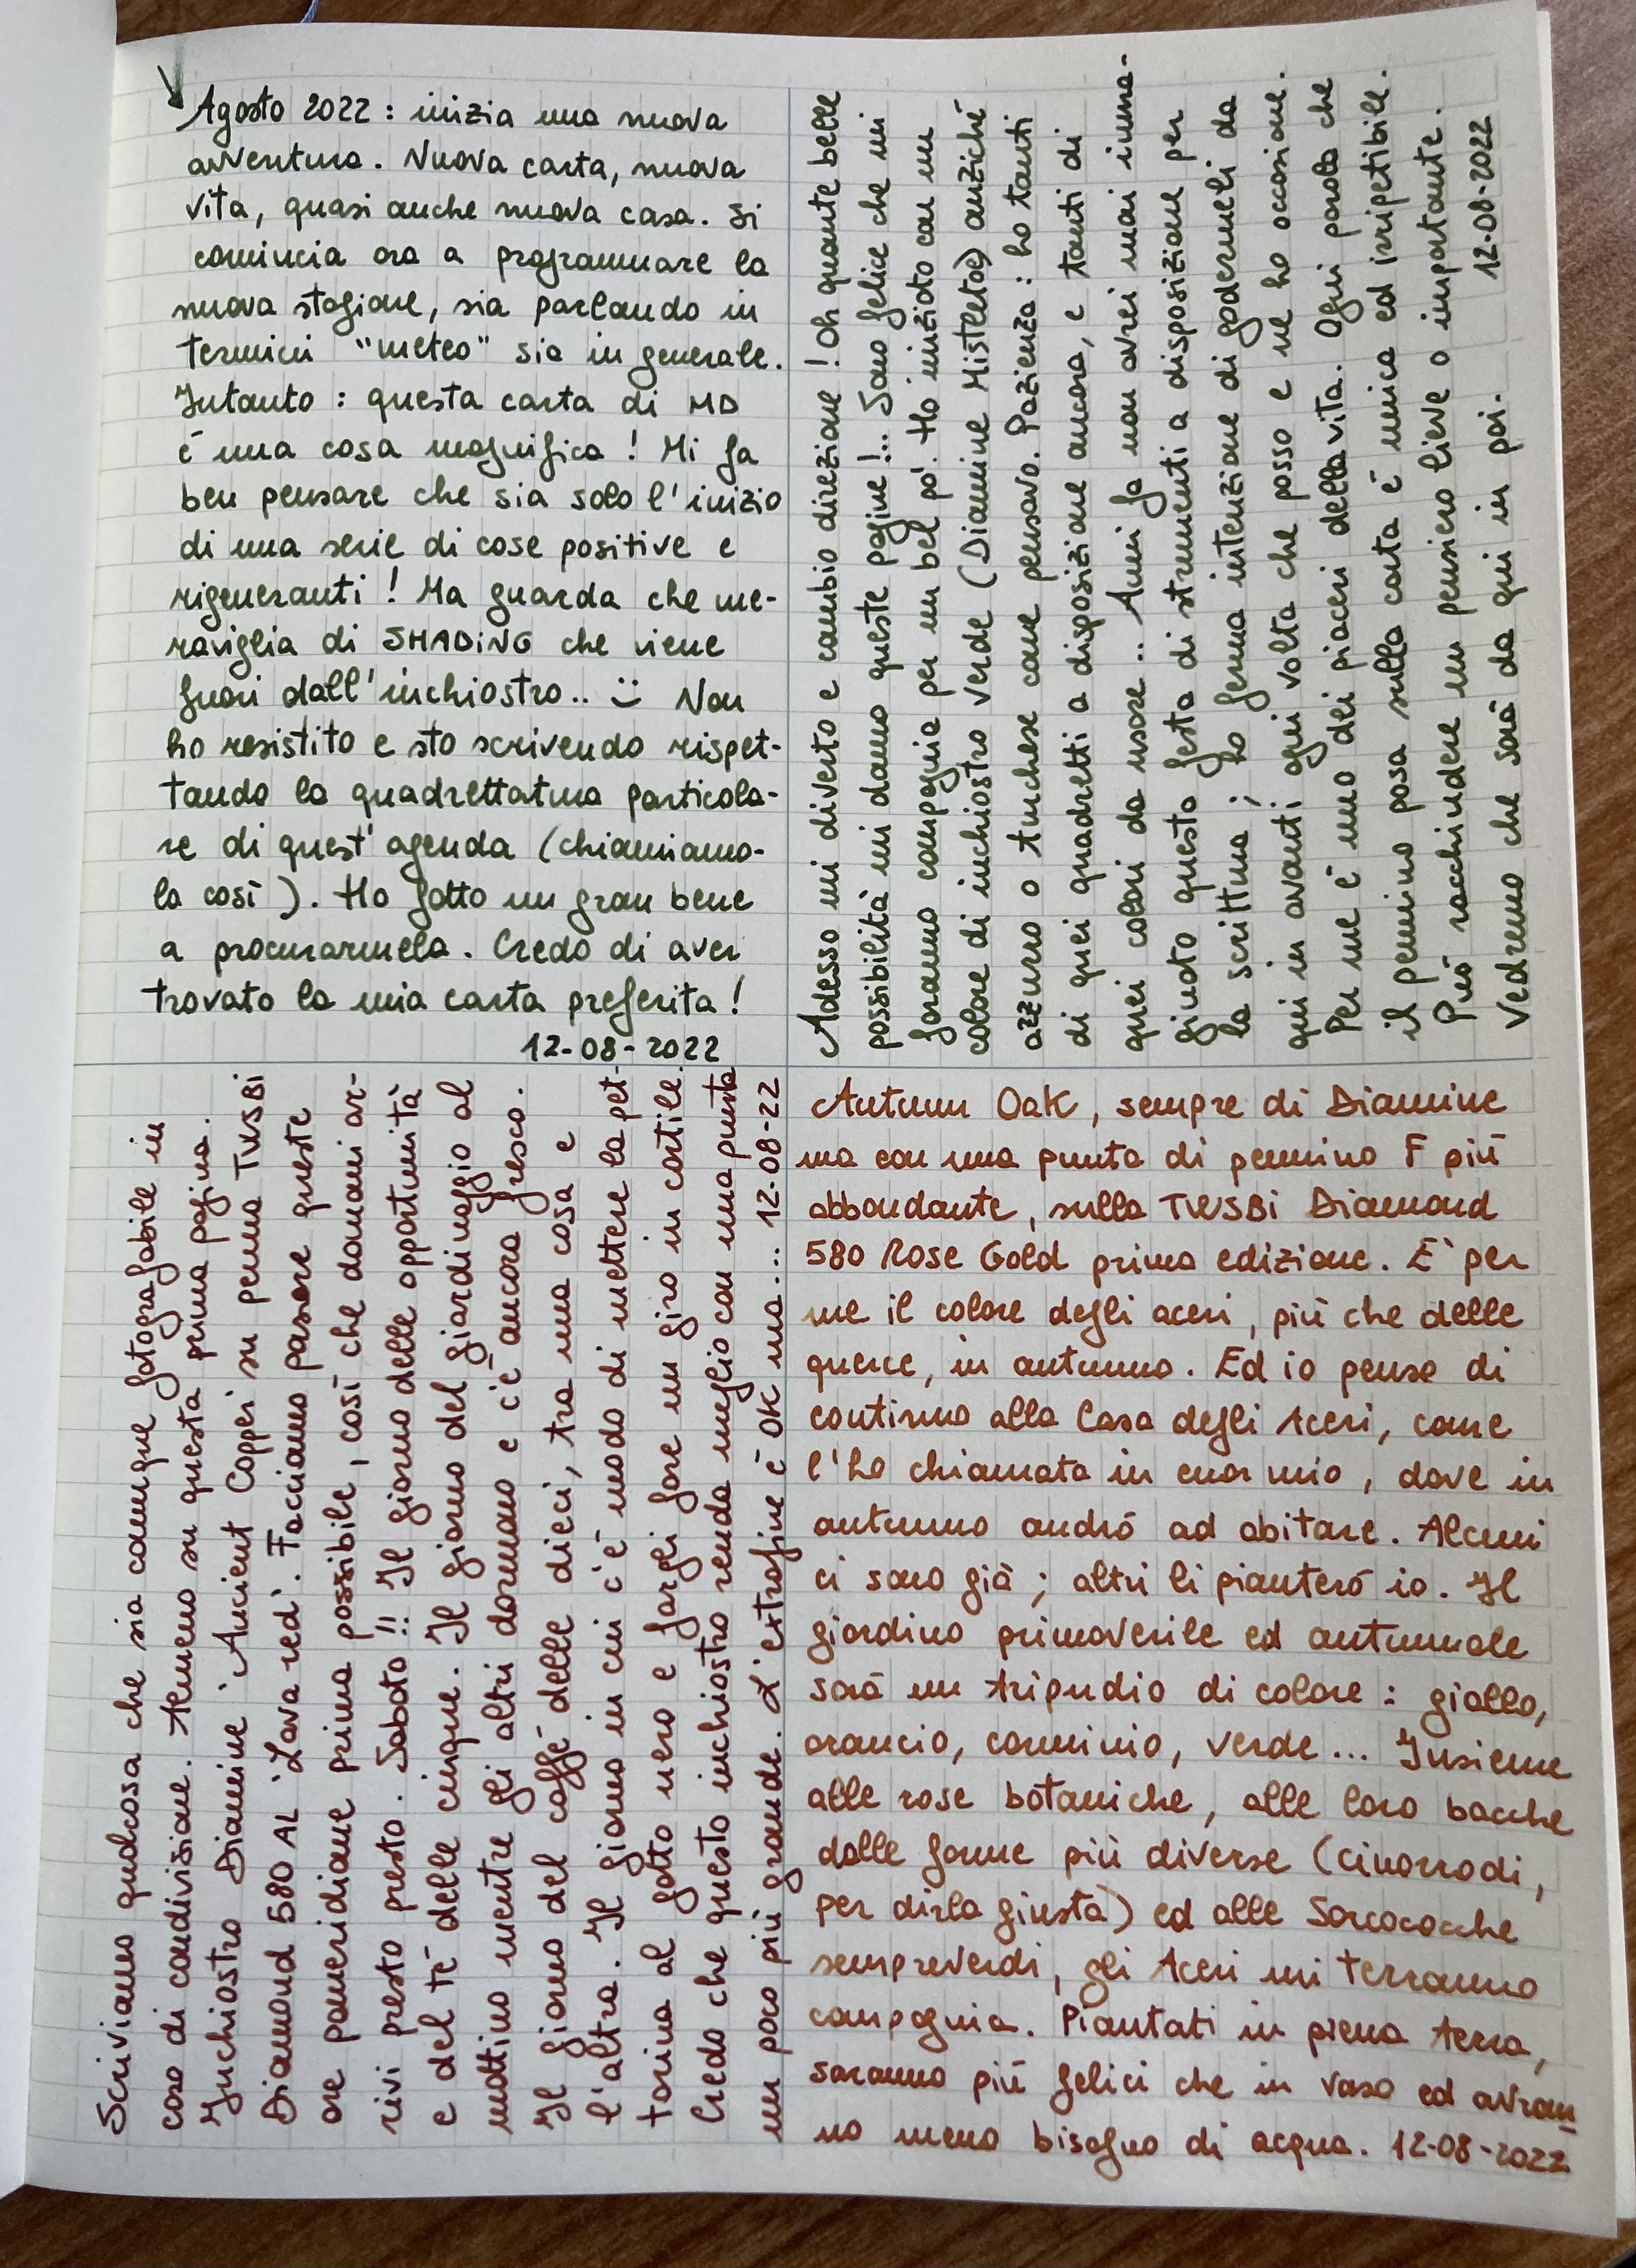 Agosto 2022 : inizia una nuova
avventura. Nuova carta, nuova
vita, quasi anche nuova casa. Si
comincia ora a programmare la
nuova stagione, sia parlando in
termini "meteo" sia in generale.
Intanto : questa carta di MD
è una cosa magnifica ! Mi fa
ben pensare che sia solo l'inizio
di una serie di cose positive e
rigeneranti ! Ma guarda che me-
raviglia di SHADING che viene
fuori dall'inchiostro.. :) Non
ho resistito e sto scrivendo rispet-
tando la quadrettatura particola-
re di quest'agenda (chiamiamo-
la così). Ho fatto un gran bene
a procurarmela. Credo di aver
trovato la mia carta preferita !
12-08-2022
Adesso mi diverto e cambio direzione ! Oh quante belle
possibilità mi danno queste pagine !.. Sono felice che mi
faranno compagnia per un bel po'. Ho iniziato con un
colore di inchiostro verde (Diamine Mistletoe) anziché
azzurro o turchese come pensavo. Pazienza : ho tanti
di quei quadretti a disposizione ancora, e tanti di
quei colori da usare .. Anni fa non avrei mai imma-
ginato questa festa di strumenti a disposizione per
la scrittura ; ho ferma intenzione di godermeli da
qui in avanti ogni volta che posso e ne ho occasione.
Per me è uno dei piaceri della vita. Ogni parola che
il pennino posa sulla carta è unica ed irripetibile.
Può racchiudere un pensiero lieve o importante.
Vedremo che sarà da qui in poi. 12-08-2022
Scriviamo qualcosa che sia comunque fotografabile in
caso di condivisione. Almeno su questa prima pagina.
Inchiostro Diamine 'Ancient Copper' su penna TWSBI
Diamond 580 AL 'Lava red'. Facciamo passare queste
ore pomeridiane prima possibile, così che domani ar-
rivi presto presto. Sabato !! Il giorno delle opportunità
e del tè delle cinque. Il giorno del giardinaggio al
mattino mentre gli altri dormono e c'è ancora fresco.
Il giorno del caffè delle dieci, tra una cosa e
l'altra. Il giorno in cui c'è modo di mettere la pet-
torina al gatto nero e fargli fare un giro in cortile.
Credo che questo inchiostro renda meglio con una punta
un poco più grande. L'extrafine è OK ma... 12-08-22
Autumn Oak, sempre di Diamine
ma con una punta di pennino F più
abbondante, sulla TWSBI Diamond
580 Rose Gold prima edizione. E' per
me il colore degli aceri, più che delle
querce, in autunno. Ed io penso di
continuo alla Casa degli Aceri, come
l'ho chiamata in cuor mio, dove in
autunno andrò ad abitare. Alcuni
ci sono già ; altri li pianterò io. Il
giardino primaverile ed autunnale
sarà un tripudio di colore : giallo,
arancio, carminio, verde... Insieme
alle rose botaniche, alle loro bacche
dalle forme più diverse (cinorrodi,
per dirla giusta) ed alle Sarcococche
sempreverdi, gli Aceri mi terranno
compagnia. Piantati in piena terra,
saranno più felici che in vaso ed avran
no meno bisogno di acqua. 12-08-2022